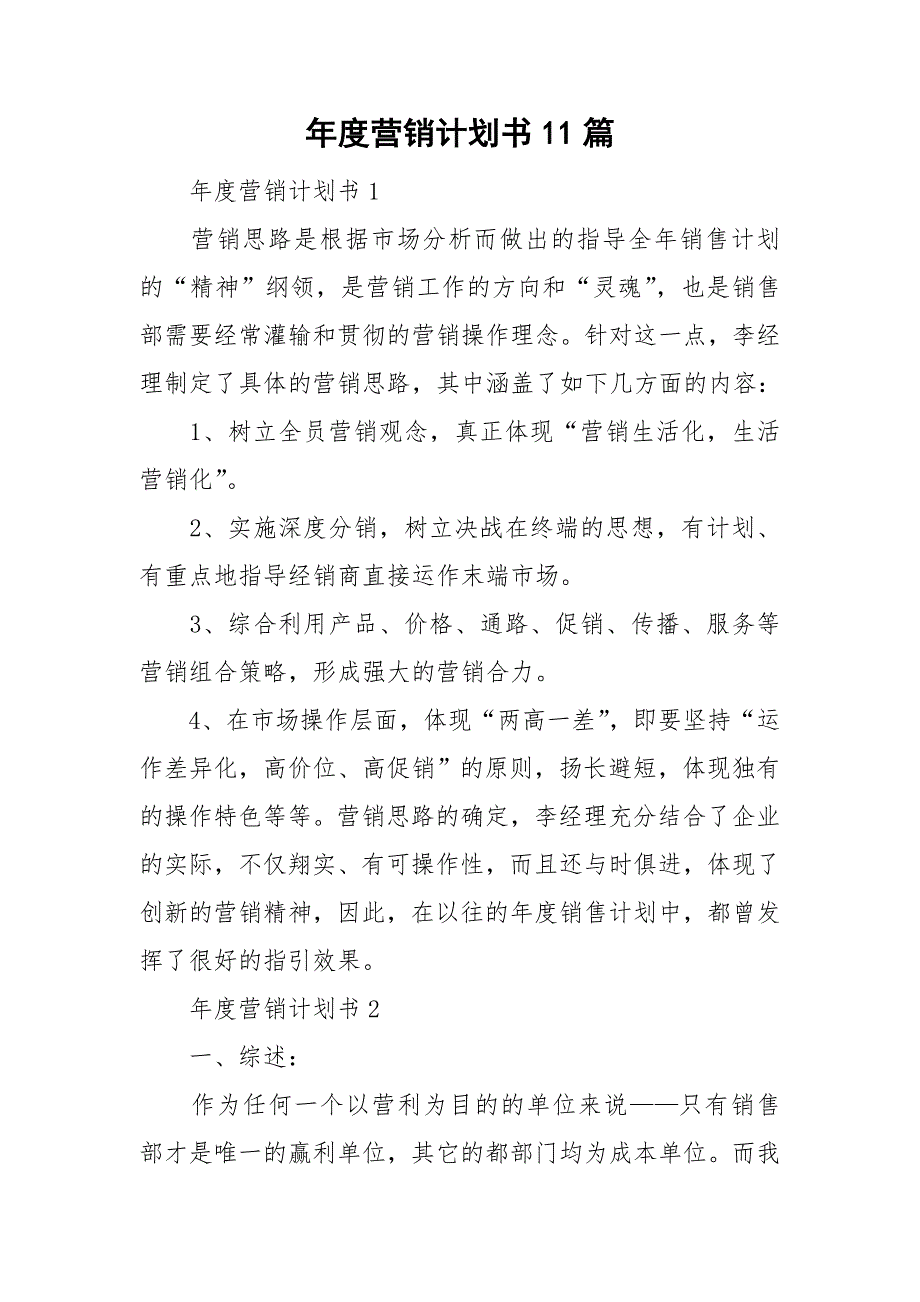 年度营销计划书11篇
年度营销计划书1
营销思路是根据市场分析而做出的指导全年销售计划
的“精神”纲领，是营销工作的方向和“灵魂”，也是销售
部需要经常灌输和贯彻的营销操作理念。针对这一点，李经
理制定了具体的营销思路，其中涵盖了如下几方面的内容：
1、树立全员营销观念，真正体现“营销生活化，生活
营销化”。
2、实施深度分销，树立决战在终端的思想，有计划、
有重点地指导经销商直接运作末端市场。
3、综合利用产品、价格、通路、促销、传播、服务等
营销组合策略，形成强大的营销合力。
4、在市场操作层面，体现“两高一差”，即要坚持“运
作差异化，高价位、高促销”的原则，扬长避短，体现独有
的操作特色等等。营销思路的确定，李经理充分结合了企业
的实际，不仅翔实、有可操作性，而且还与时俱进，体现了
创新的营销精神，因此，在以往的年度销售计划中，都曾发
挥了很好的指引效果。
年度营销计划书2
一、综述：
作为任何一个以营利为目的的单位来说——只有销售
部才是唯一的赢利单位，其它的都部门均为成本单位。而我